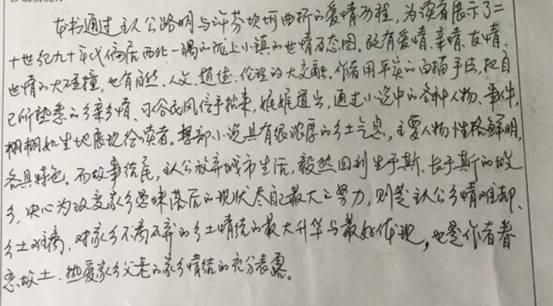 本书通过主人公路明与许芬坎坷曲折的爱情历程，为读者展示了二
十世纪九十年代偏居西北一隅的陇上小镇的世情百态图。既有爱情、亲情、友情、
世情的大碰撞，也有自然、人文、道德、伦理的大交融。作者用平实的白描手法，把自
己所熟悉的乡亲乡情、司谷民风信手拈来，娓娓道出，通过小说中的各种人物、事件，
栩栩如生地展现给读者。整部小说具有很浓厚的乡土气息，主要人物性格鲜明，
各具特色。而故事结尾，主人公放弃城市生活，毅然回到生于斯、长于斯的故
乡，决心为改变家乡愚昧落后的现状尽自己最大之努力，则是主人公乡情难却、
乡土难离，对家乡不离不弃的乡土情结的最大升华与最好体现，也是作者眷
恋故土、热爱家乡父老的家乡情结的充分表露。